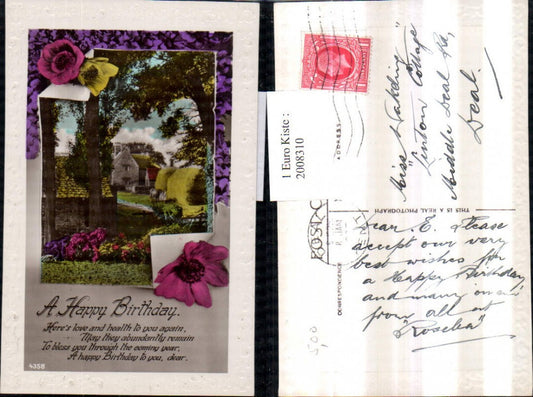 A Happy Birthday.
Here's love and health to you again,
May they abundantly remain
To bless you through the coming year,
A happy Birthday to you, dear.
4358
1 Euro Kiste :
2008310
ADDRESS
Miss Nakeling
"Linton" Cottage
Middle Deal Rd,
Deal.
THIS IS A REAL PHOTOGRAPH
POST C
CORRESPONDENCE
Dear E. Please
accept our very
best wishes for
a Happy Birthday
and many
from all at
"Roselea"
5,00